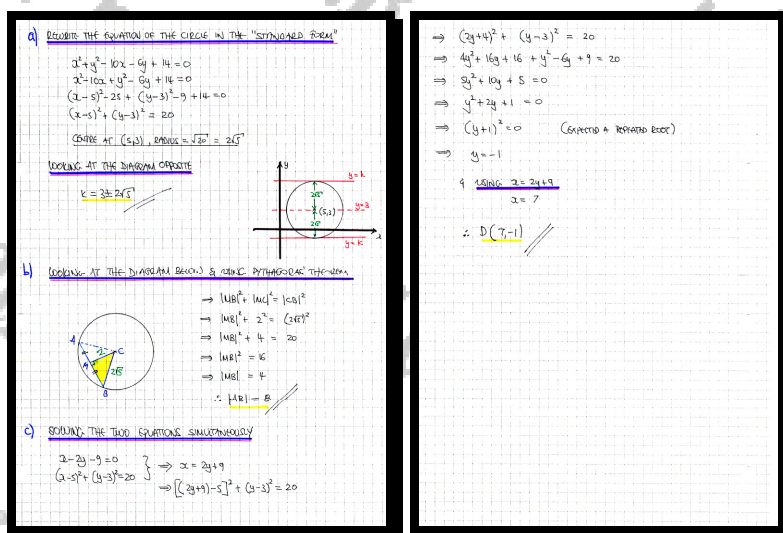 a) REWRITE THE EQUATION OF THE CIRCLE IN THE "STANDARD FORM"
x² + y² - 10x - 6y + 14 = 0
x² - 10x + y² - 6y + 14 = 0
(x-5)² - 25 + (y-3)² - 9 + 14 = 0
(x-5)² + (y-3)² = 20
CENTRE AT (5,3), RADIUS = √20 = 2√5
LOOKING AT THE DIAGRAM OPPOSITE
k = 3 ± 2√5
y
y = k
2√5
(5,3)
y = 3
2√5
x
y = k
b) LOOKING AT THE DIAGRAM BELOW & USING PYTHAGORAS' THEOREM
A
2
C
M
2√5
B
⇒ |MB|² + |MC|² = |CB|²
⇒ |MB|² + 2² = (2√5)²
⇒ |MB|² + 4 = 20
⇒ |MB|² = 16
⇒ |MB| = 4
∴ |AB| = 8
c) SOLVING THE TWO EQUATIONS SIMULTANEOUSLY
x - 2y - 9 = 0
(x-5)² + (y-3)² = 20
} ⇒ x = 2y + 9
⇒ [(2y+9)-5]² + (y-3)² = 20
⇒ (2y+4)² + (y-3)² = 20
⇒ 4y² + 16y + 16 + y² - 6y + 9 = 20
⇒ 5y² + 10y + 5 = 0
⇒ y² + 2y + 1 = 0
⇒ (y+1)² = 0 (EXPECTED A REPEATED ROOT)
⇒ y = -1
& USING x = 2y + 9
x = 7
∴ D(7,-1)